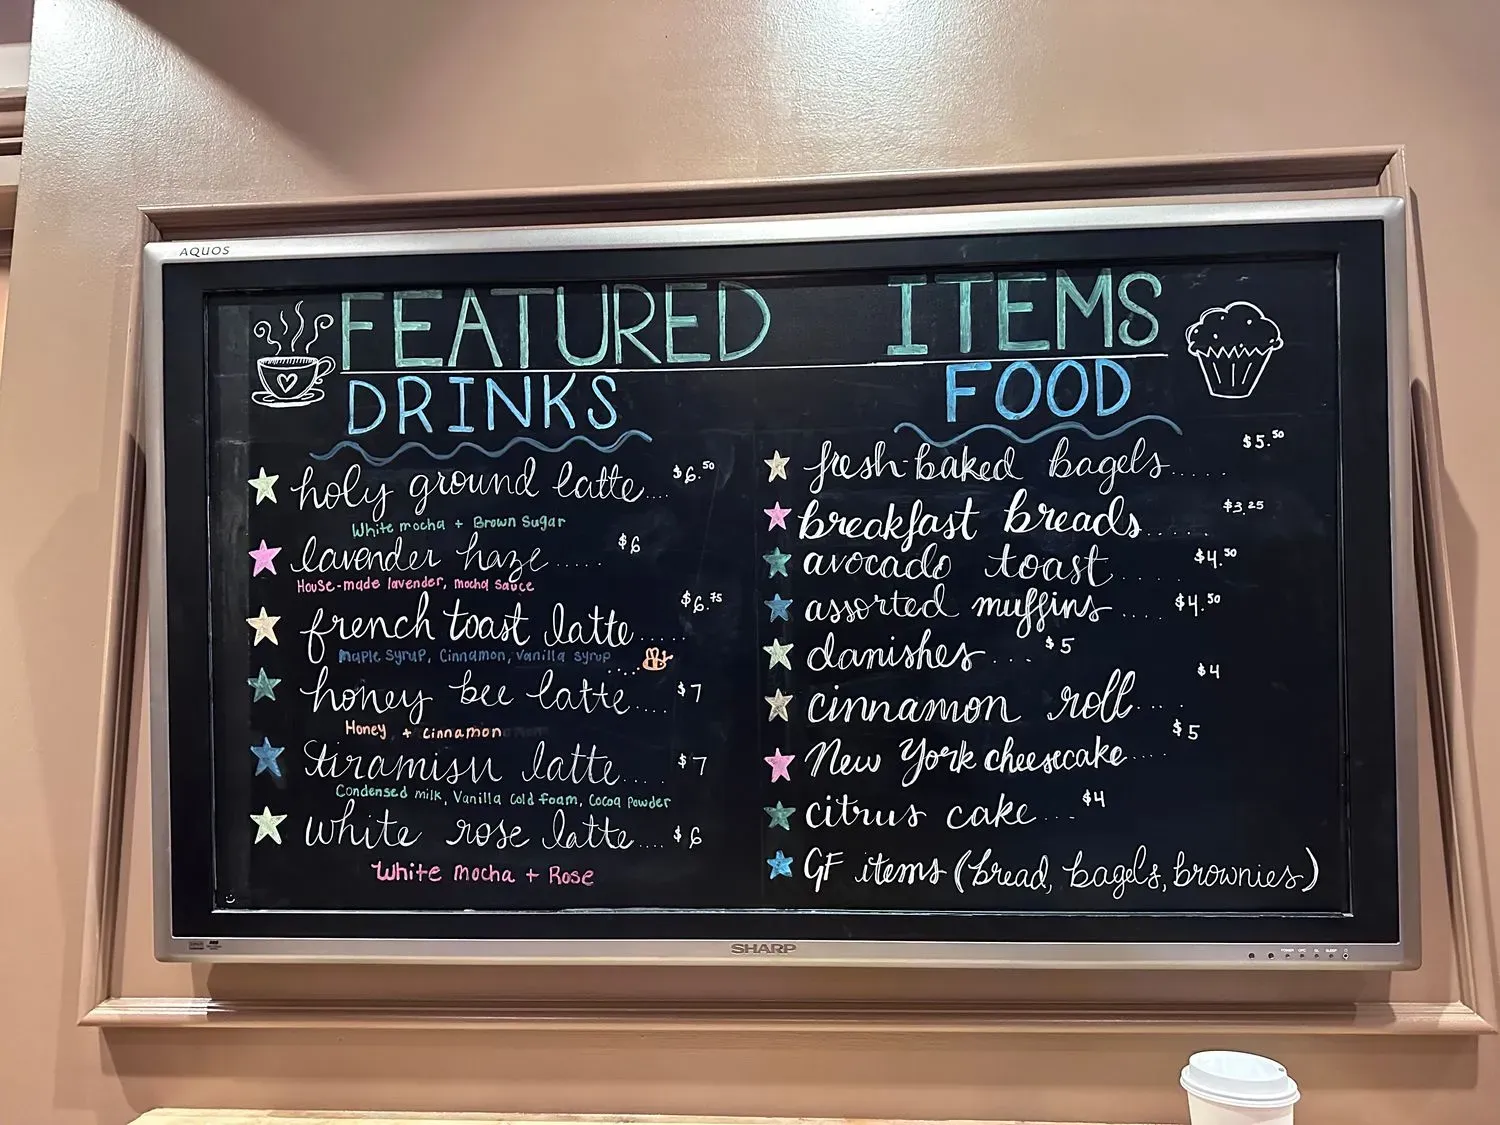 AQUOS
FEATURED ITEMS
DRINKS
holy ground latte.... $6.50
White mocha + Brown Sugar
lavender haze..... $6
House-made lavender, mocha sauce
french toast latte..... $6.75
Maple syrup, Cinnamon, Vanilla syrup
honey bee latte.... $7
Honey + Cinnamon
tiramisu latte.... $7
Condensed milk, Vanilla cold foam, Cocoa powder
white rose latte.... $6
White mocha + Rose
FOOD
fresh-baked bagels..... $5.50
breakfast breads..... $3.25
avocado toast..... $4.50
assorted muffins.... $4.50
danishes... $5
cinnamon roll.... $4
New York cheesecake.... $5
citrus cake... $4
GF items (bread, bagels, brownies)
SHARP